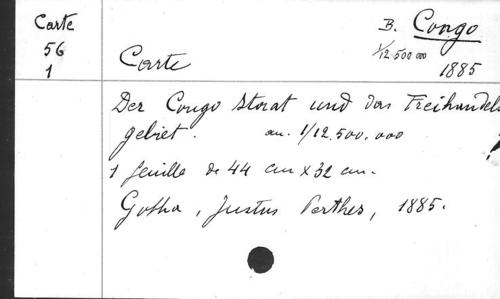 Carte
56
1
B. Congo
1/12.500 000
1885
Carte
Der Congo Staat und das Freihandels
gebiet. au. 1/12.500.000
1 feuille de 44 cm x 32 cm.
Gotha, Justus Perthes, 1885.